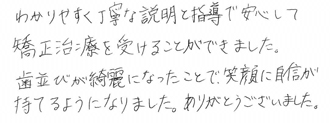 わかりやすく丁寧な説明と指導で安心して
矯正治療を受けることができました。
歯並びが綺麗になったことで笑顔に自信が
持てるようになりました。ありがとうございました。